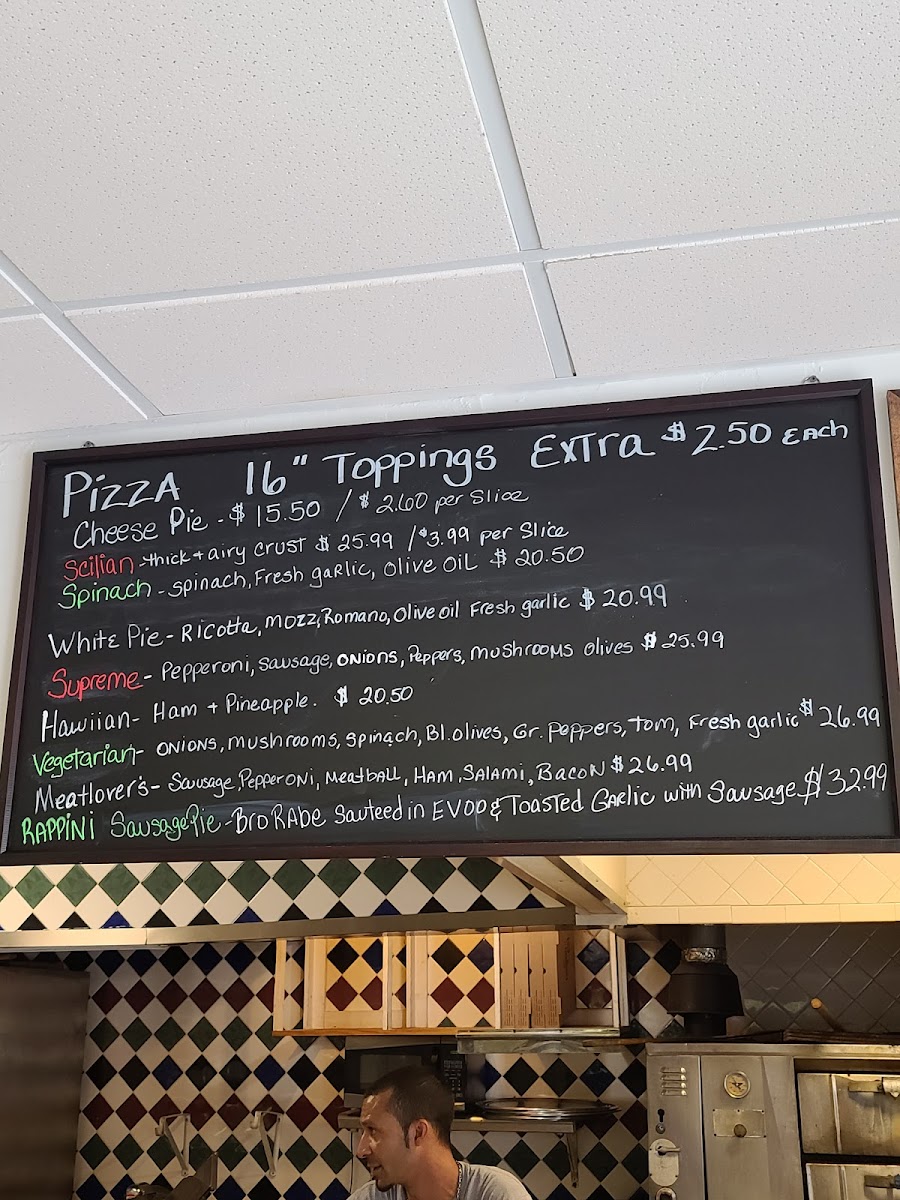 PIZZA 16" Toppings Extra $2.50 EACH
Cheese Pie - $15.50 / $2.60 per Slice
Scilian - thick + airy crust $25.99 / $3.99 per Slice
Spinach - spinach, Fresh garlic, olive oil $20.50
White Pie - Ricotta, Mozz, Romano, Olive oil Fresh garlic $20.99
Supreme - Pepperoni, sausage, onions, Peppers, mushrooms olives $25.99
Hawiian - Ham + Pineapple. $20.50
Vegetarian - onions, mushrooms, spinach, Bl. olives, Gr. peppers, Tom, Fresh garlic $26.99
Meatlover's - Sausage, Pepperoni, Meatball, Ham, Salami, Bacon $26.99
RAPPINI Sausage Pie - Bro RAbe Sauteed in EVOO & Toasted Garlic with Sausage $32.99